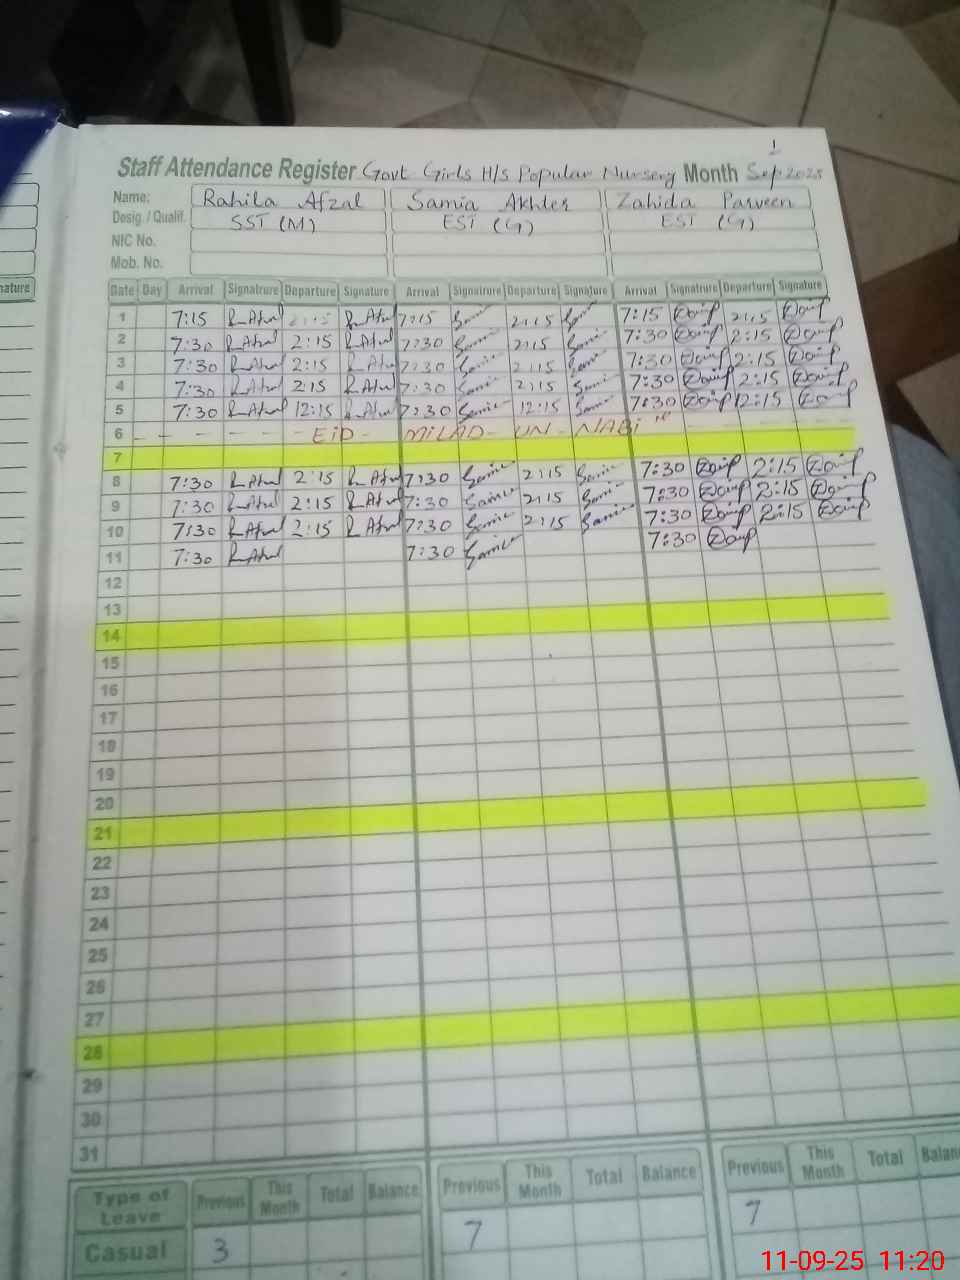 1
Staff Attendance Register Govt Girls H/S Popular Nursery Month Sep 2025
Name: Rahila Afzal Samia Akhter Zahida Parveen
Desig. / Qualif. SST (M) EST (G) EST (G)
NIC No.
Mob. No.
nature
Date Day Arrival Signatrure Departure Signature Arrival Signatrure Departure Signature Arrival Signatrure Departure Signature
1 7:15 R Afzal 2:15 R Afzal 7:15 Samia 2:15 7:15 2:15
2 7:30 R Afzal 2:15 R Afzal 7:30 Samia 2:15 Samia 7:30 2:15
3 7:30 R Afzal 2:15 R Afzal 7:30 Samia 2:15 Samia 7:30 2:15
4 7:30 R Afzal 2:15 R Afzal 7:30 Samia 2:15 Samia 7:30 2:15
5 7:30 R Afzal 12:15 R Afzal 7:30 Samia 12:15 Samia 7:30 12:15
6 - - - - - EID - MILAD - UN - NABI
7
8 7:30 R Afzal 2:15 R Afzal 7:30 Samia 2:15 Samia 7:30 2:15
9 7:30 R Afzal 2:15 R Afzal 7:30 Samia 2:15 Samia 7:30 2:15
10 7:30 R Afzal 2:15 R Afzal 7:30 Samia 2:15 Samia 7:30 2:15
11 7:30 R Afzal 7:30 Samia 7:30
12
13
14
15
16
17
18
19
20
21
22
23
24
25
26
27
28
29
30
31
Type of Leave Previous This Month Total Balance Previous This Month Total Balance Previous This Month Total Balan
Casual 3 7 7
11-09-25 11:20